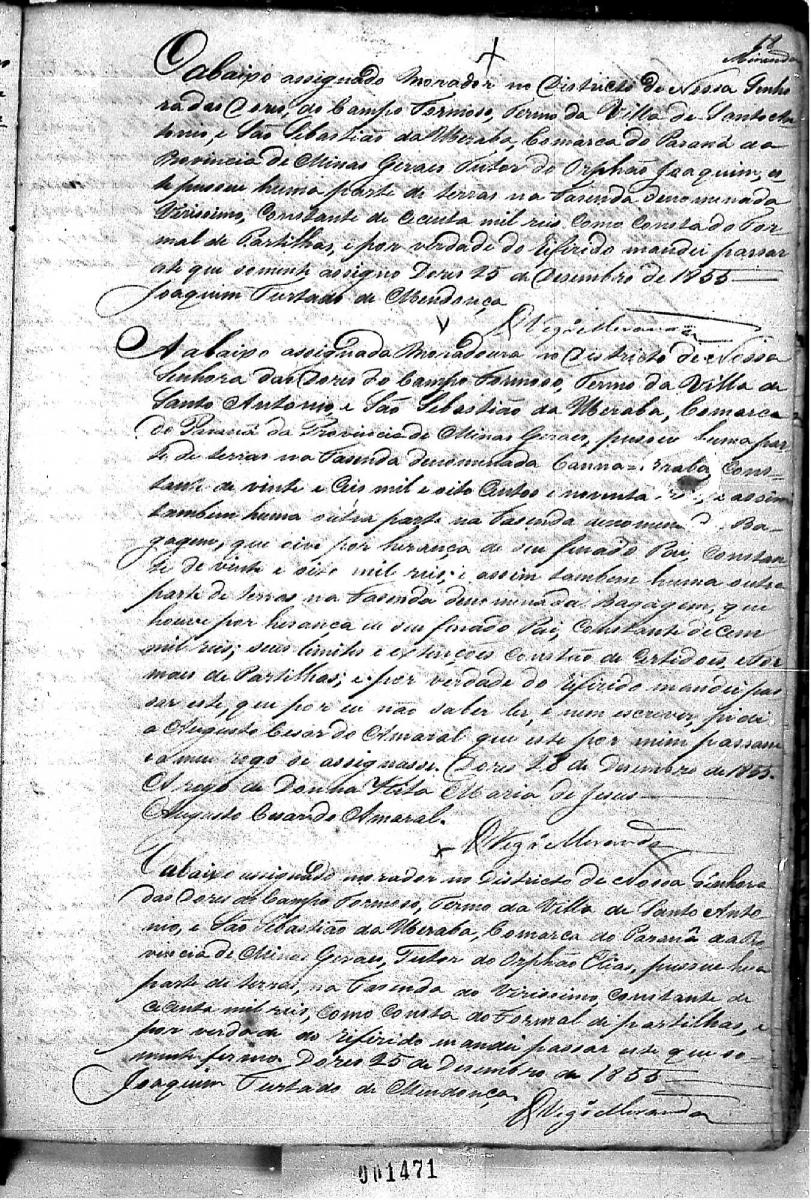 Miranda
O abaixo assignado Morador no Districto de Nossa Senho
ra das Dores, do Campo Formoso, Termo da Villa de Santo An
tonio, e São Sebastião da Uberaba, Comarca do Paraná da
Provincia de Minas Geraes Tutor do Orphão Joaquim, es
te possue huma parte de terras na Fasenda denominada
Virissimo, Constante de Oitenta mil reis, como Consta do For
mal de Partilhas, e por verdade do refirido mandei passar
este que somente assigno Dores 25 de Desembro de 1855
Joaquim Furtado de Mendonça
O Vigº Miranda
A abaixo assignada Moradoura no Districto de Nossa
Senhora das Dores do Campo Formoso, Termo da Villa de
Santo Antonio, e São Sebastião da Uberaba, Comarca
do Paraná da Provincia de Minas Geraes, possuo huma par
te de terras na Fasenda denominada Canna- Cons-
tante de vinte e Ceis mil e oito Centos e noventa e assim
tambem huma outra parte na Fasenda denomen Ba-
gagem, que por herança de seu finado Pai, Constan
te de vinte e oito mil reis; e assim tambem huma outra
parte de terras na Fasenda denominada Bagagem, que
houve por herança de seu finado Pai, Constante de Cem
mil reis; seus limites e Constão de Certidões, e For
mais de Partilhas; e por verdade do refirido mandei pas
sar este, que por eu não saber ler, e nem escrever, pidi
a Augusto Cesar do Amaral que este por mim passasse
e a meu rogo se assignasse. Dores 28 de Desembro de 1855.
A rogo de Donna Rita Maria de Jesus
Augusto Cesar do Amaral.
O Vigº Miranda
O abaixo assignado morador no Districto de Nossa Senhora
das Dores do Campo Formoso, Termo da Villa de Santo Anto
nio, e São Sebastião da Uberaba, Comarca do Paraná da Pro
vincia de Minas Geraes, Tutor do Orphão Elias, possue hua
parte de terras, na Fasenda do Virissimo, Constante de
Oitenta mil reis, como Consta do Formal de partilhas, e
por verdade do refirido mandei passar este que so-
mente firmo Dores 25 de Desembro de 1855
Joaquim Furtado de Mendonça
O Vigº Miranda
001471